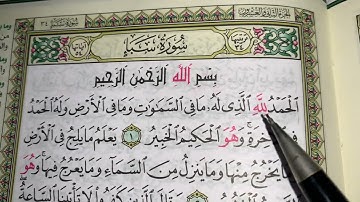 سُورَةُ سَبَإٍ
بِسْمِ اللَّهِ الرَّحْمَٰنِ الرَّحِيمِ
الْحَمْدُ لِلَّهِ الَّذِي لَهُ مَا فِي السَّمَاوَاتِ وَمَا فِي الْأَرْضِ وَلَهُ الْحَمْدُ
فِي الْآخِرَةِ وَهُوَ الْحَكِيمُ الْخَبِيرُ ١ يَعْلَمُ مَا يَلِجُ فِي الْأَرْضِ
وَمَا يَخْرُجُ مِنْهَا وَمَا يَنزِلُ مِنَ السَّمَاءِ وَمَا يَعْرُجُ فِيهَا وَهُوَ
وَقَالَ الَّذِينَ كَفَرُوا لَا تَأْتِينَا السَّاعَةُ